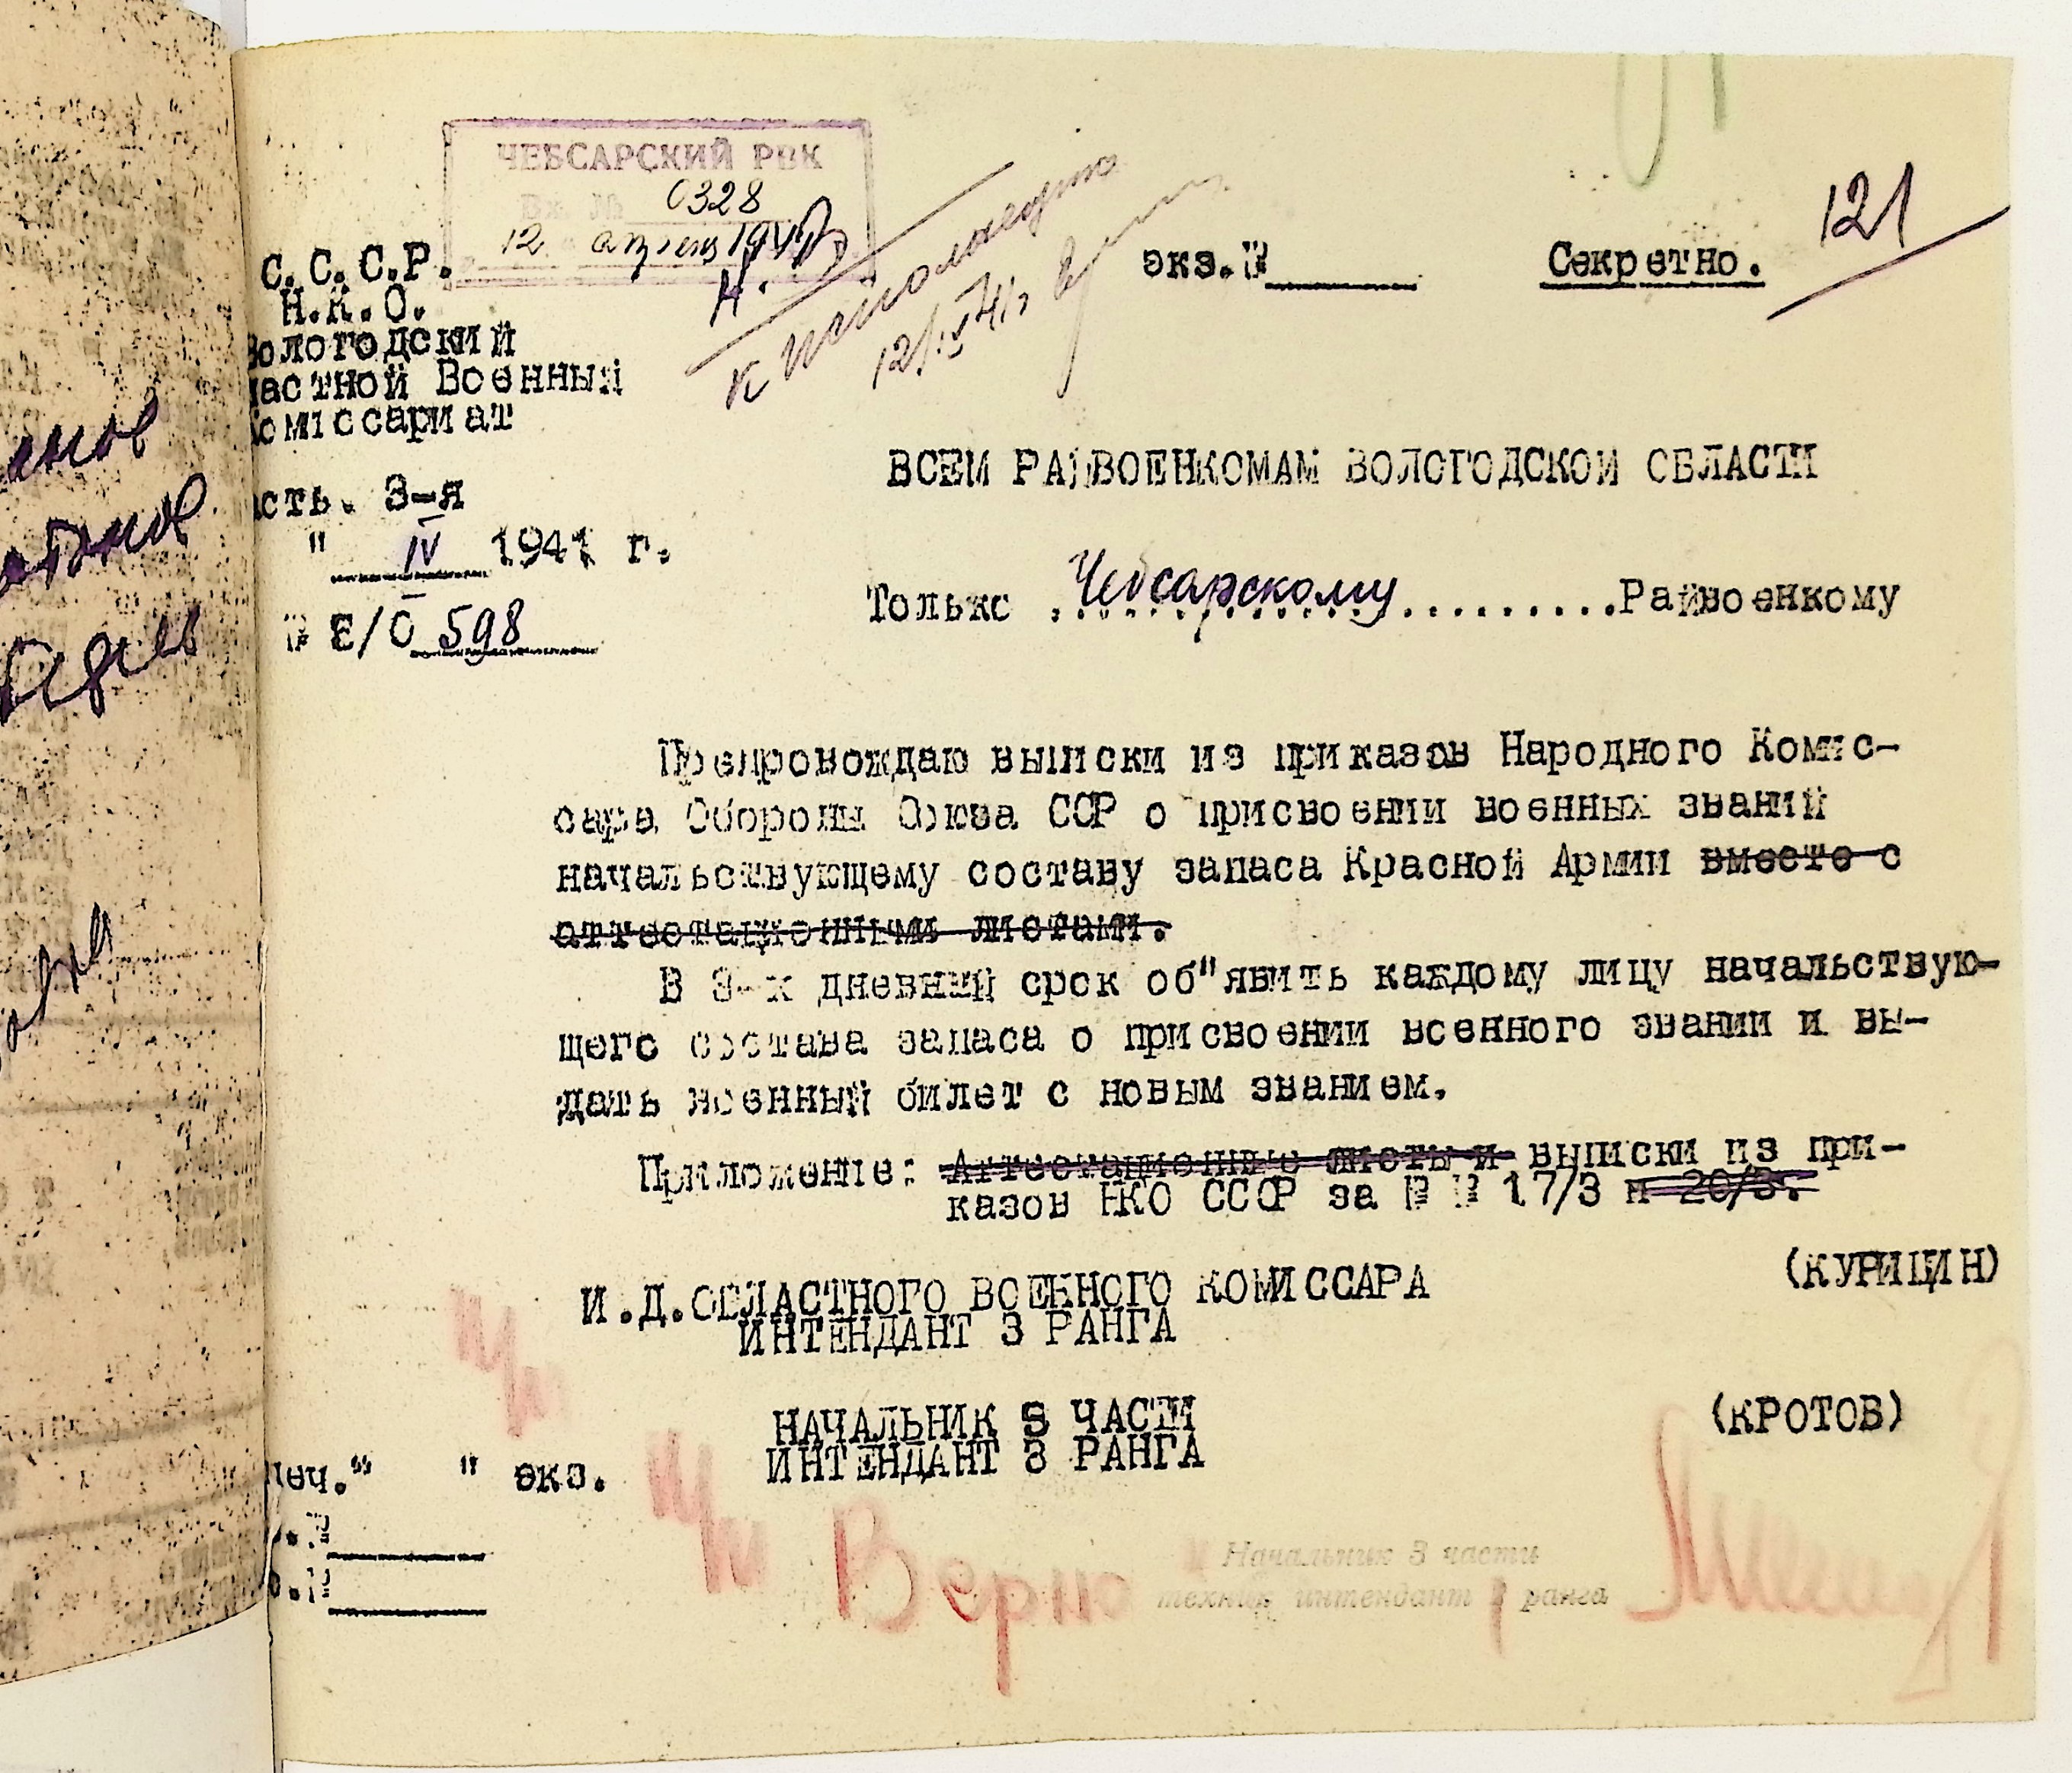 ЧЕБСАРСКИЙ РВК
Вх. № 0328
12 апреля 1941
121
С.С.С.Р.
экз.№
Секретно.
Н.К.О.
Вологодский
ластной Военный
Комиссариат
ВСЕМ РАЙВОЕНКОМАМ ВОЛОГОДСКОЙ ОБЛАСТИ
асть. 3-я
" IV 1941 г.
Только Чебсарскому..........Райвоенкому
№ Е/О 598
Препровождаю выписки из приказов Народного Комис-
сара Обороны Союза ССР о присвоении военных званий
начальствующему составу запаса Красной Армии вместе с
аттестационными листами.
В 3-х дневный срок об"явить каждому лицу начальствую-
щего состава запаса о присвоении военного звании и вы-
дать военный билет с новым званием.
Приложение: Аттестационные листы и выписки из при-
казов НКО СССР за № № 17/3 и 20/3.
И.Д.ОБЛАСТНОГО ВОЕННОГО КОМИССАРА
(КУРИЦИН)
ИНТЕНДАНТ 3 РАНГА
НАЧАЛЬНИК 3 ЧАСТИ
(КРОТОВ)
ИНТЕНДАНТ 3 РАНГА
печ." " экз.
Верно
Начальник 3 части
техник интендант ранга